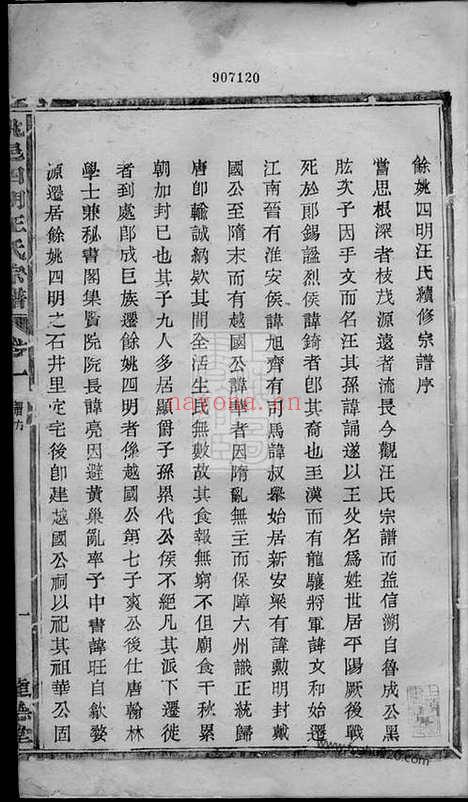 907120
餘姚四明汪氏續修宗譜序
嘗思根深者枝茂源遠者流長今觀汪氏宗譜而益信溯自魯成公黑
肱次子因手文而名汪其孫諱誦遂以王父名爲姓世居平陽厥後戰
死於郎錫謚烈侯諱錡者卽其裔也至漢而有龍驤將軍諱文和始遷
江南晉有淮安侯諱旭齊有司馬諱叔舉始居新安梁有諱勳明封戴
國公至隋末而有越國公諱華者因隋亂無主而保障六州識正統歸
唐卽輸誠納欵其間全活生民無數故其食報無窮不但廟食千秋累
朝加封已也其子九人多居顯爵子孫累代公侯不絕凡其派下遷徙
者到處卽成巨族遷餘姚四明者係越國公第七子爽公後仕唐翰林
學士兼秘書閣集賢院院長諱亮因避黃巢亂率子中書諱旺自歙婺
源遷居餘姚四明之石井里定宅後卽建越國公祠以祀其祖華公固
姚邑四明汪氏宗譜
卷一
一
www.fcshu20.com
nayona.cn